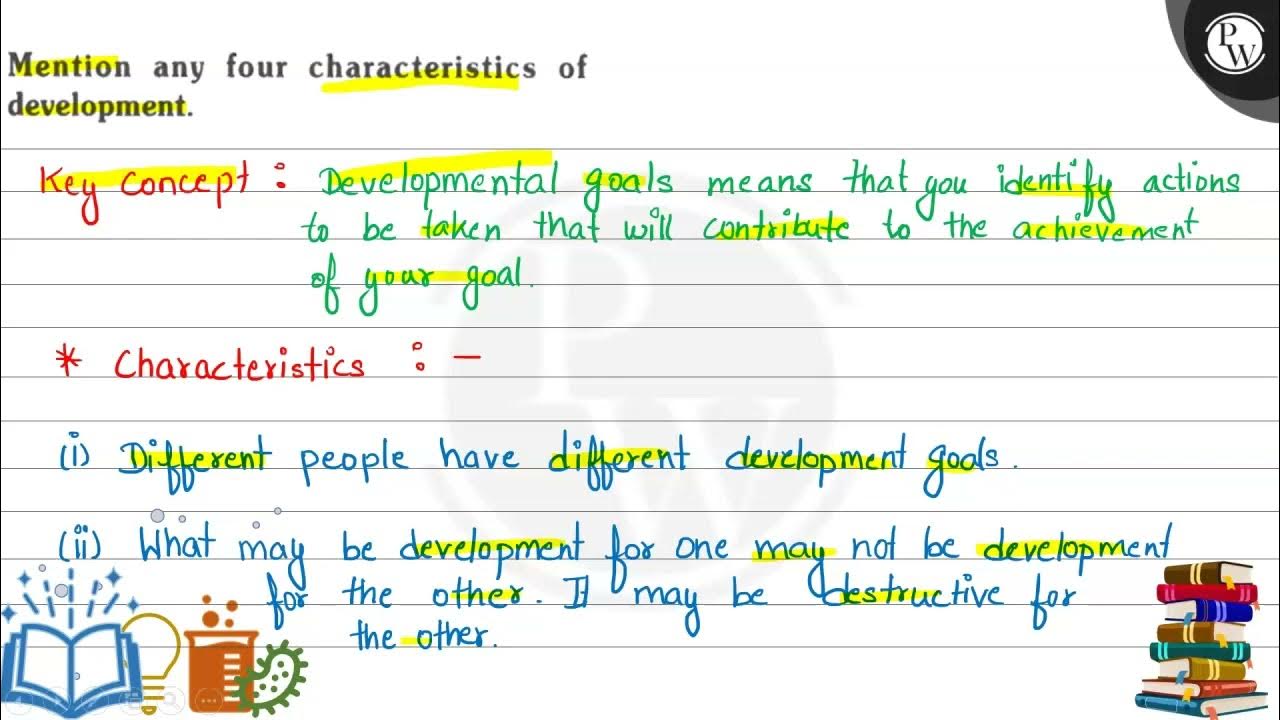 Mention any four characteristics of
development.
Key Concept : Developmental goals means that you identify actions
to be taken that will contribute to the achievement
of your goal.
* Characteristics : -
(i) Different people have different development goals.
(ii) What may be development for one may not be development
for the other. It may be destructive for
the other.
P
W
P
W